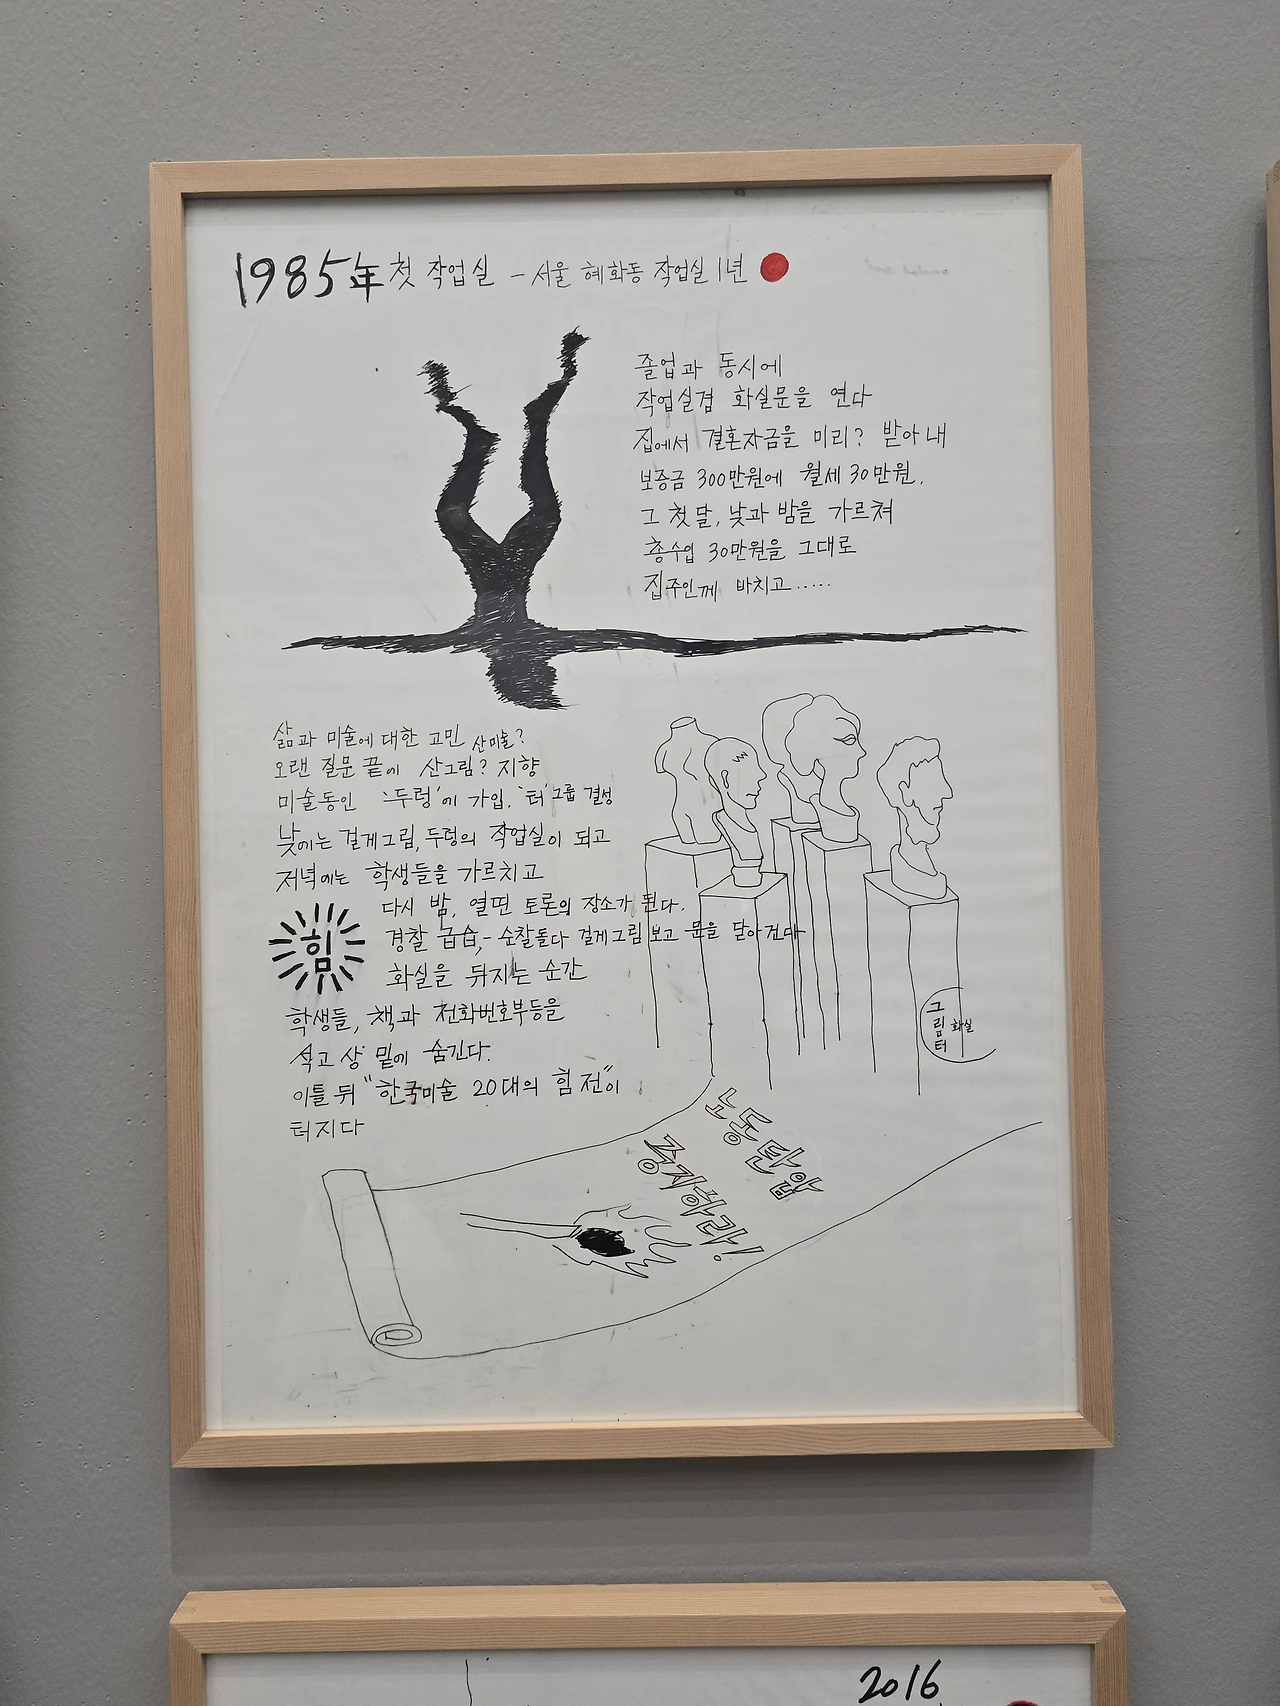 1985年 첫 작업실 - 서울 혜화동 작업실 1년
졸업과 동시에
작업실겸 화실문을 연다
집에서 결혼자금을 미리? 받아내
보증금 300만원에 월세 30만원.
그 첫달, 낮과 밤을 가르쳐
총수입 30만원을 그대로
집주인께 바치고.....
삶과 미술에 대한 고민 산미술?
오랜 질문 끝에 산그림? 지향
미술동인 '두렁'에 가입. '터'그룹 결성
낮에는 걸게그림, 두렁의 작업실이 되고
저녁에는 학생들을 가르치고
다시 밤, 열띤 토론의 장소가 된다.
힘
경찰 급습,- 순찰돌다 걸게그림 보고 문을 닫아건다
화실을 뒤지는 순간
학생들, 책과 전화번호부등을
석고상 밑에 숨긴다.
이틀 뒤 "한국미술 20대의 힘전"이
터지다
그림터
화실
노동탄압
중지하라!
2016